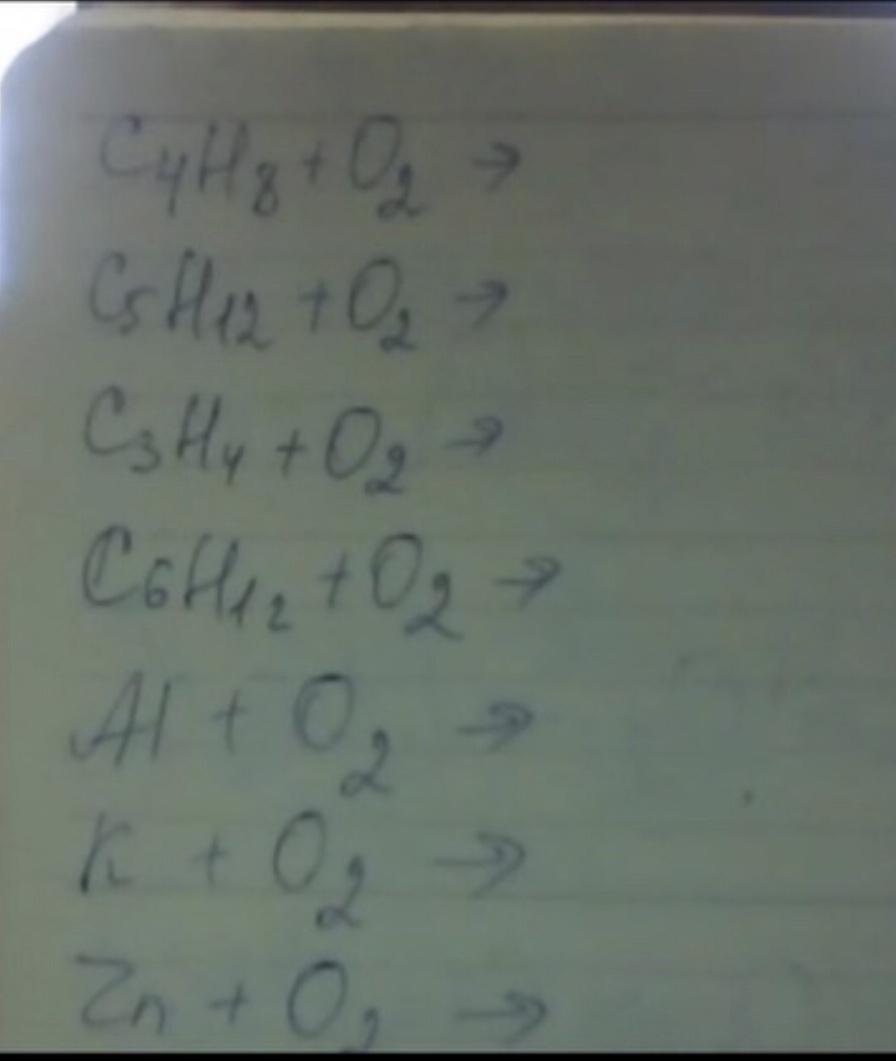 C₄H₈ + O₂ →
C₅H₁₂ + O₂ →
C₃H₄ + O₂ →
C₆H₁₂ + O₂ →
Al + O₂ →
K + O₂ →
Zn + O₂ →